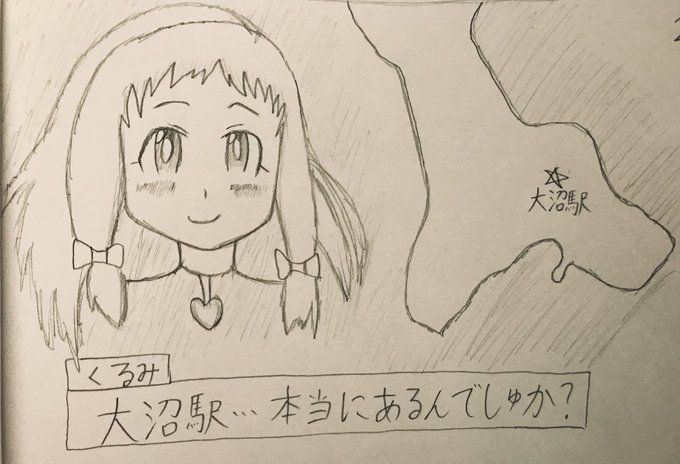 大沼駅
くるみ
大沼駅…本当にあるんでしゅか？